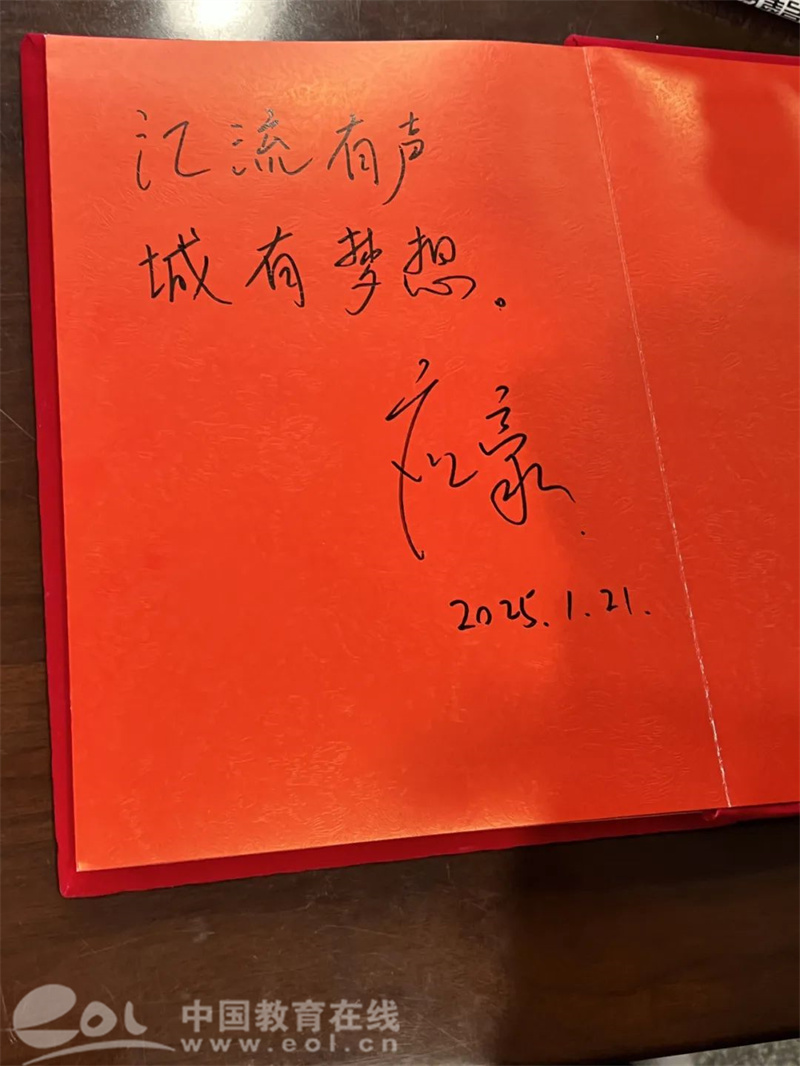 汇流有声
城有梦想。
2025.1.21.
eol 中国教育在线
www.eol.cn